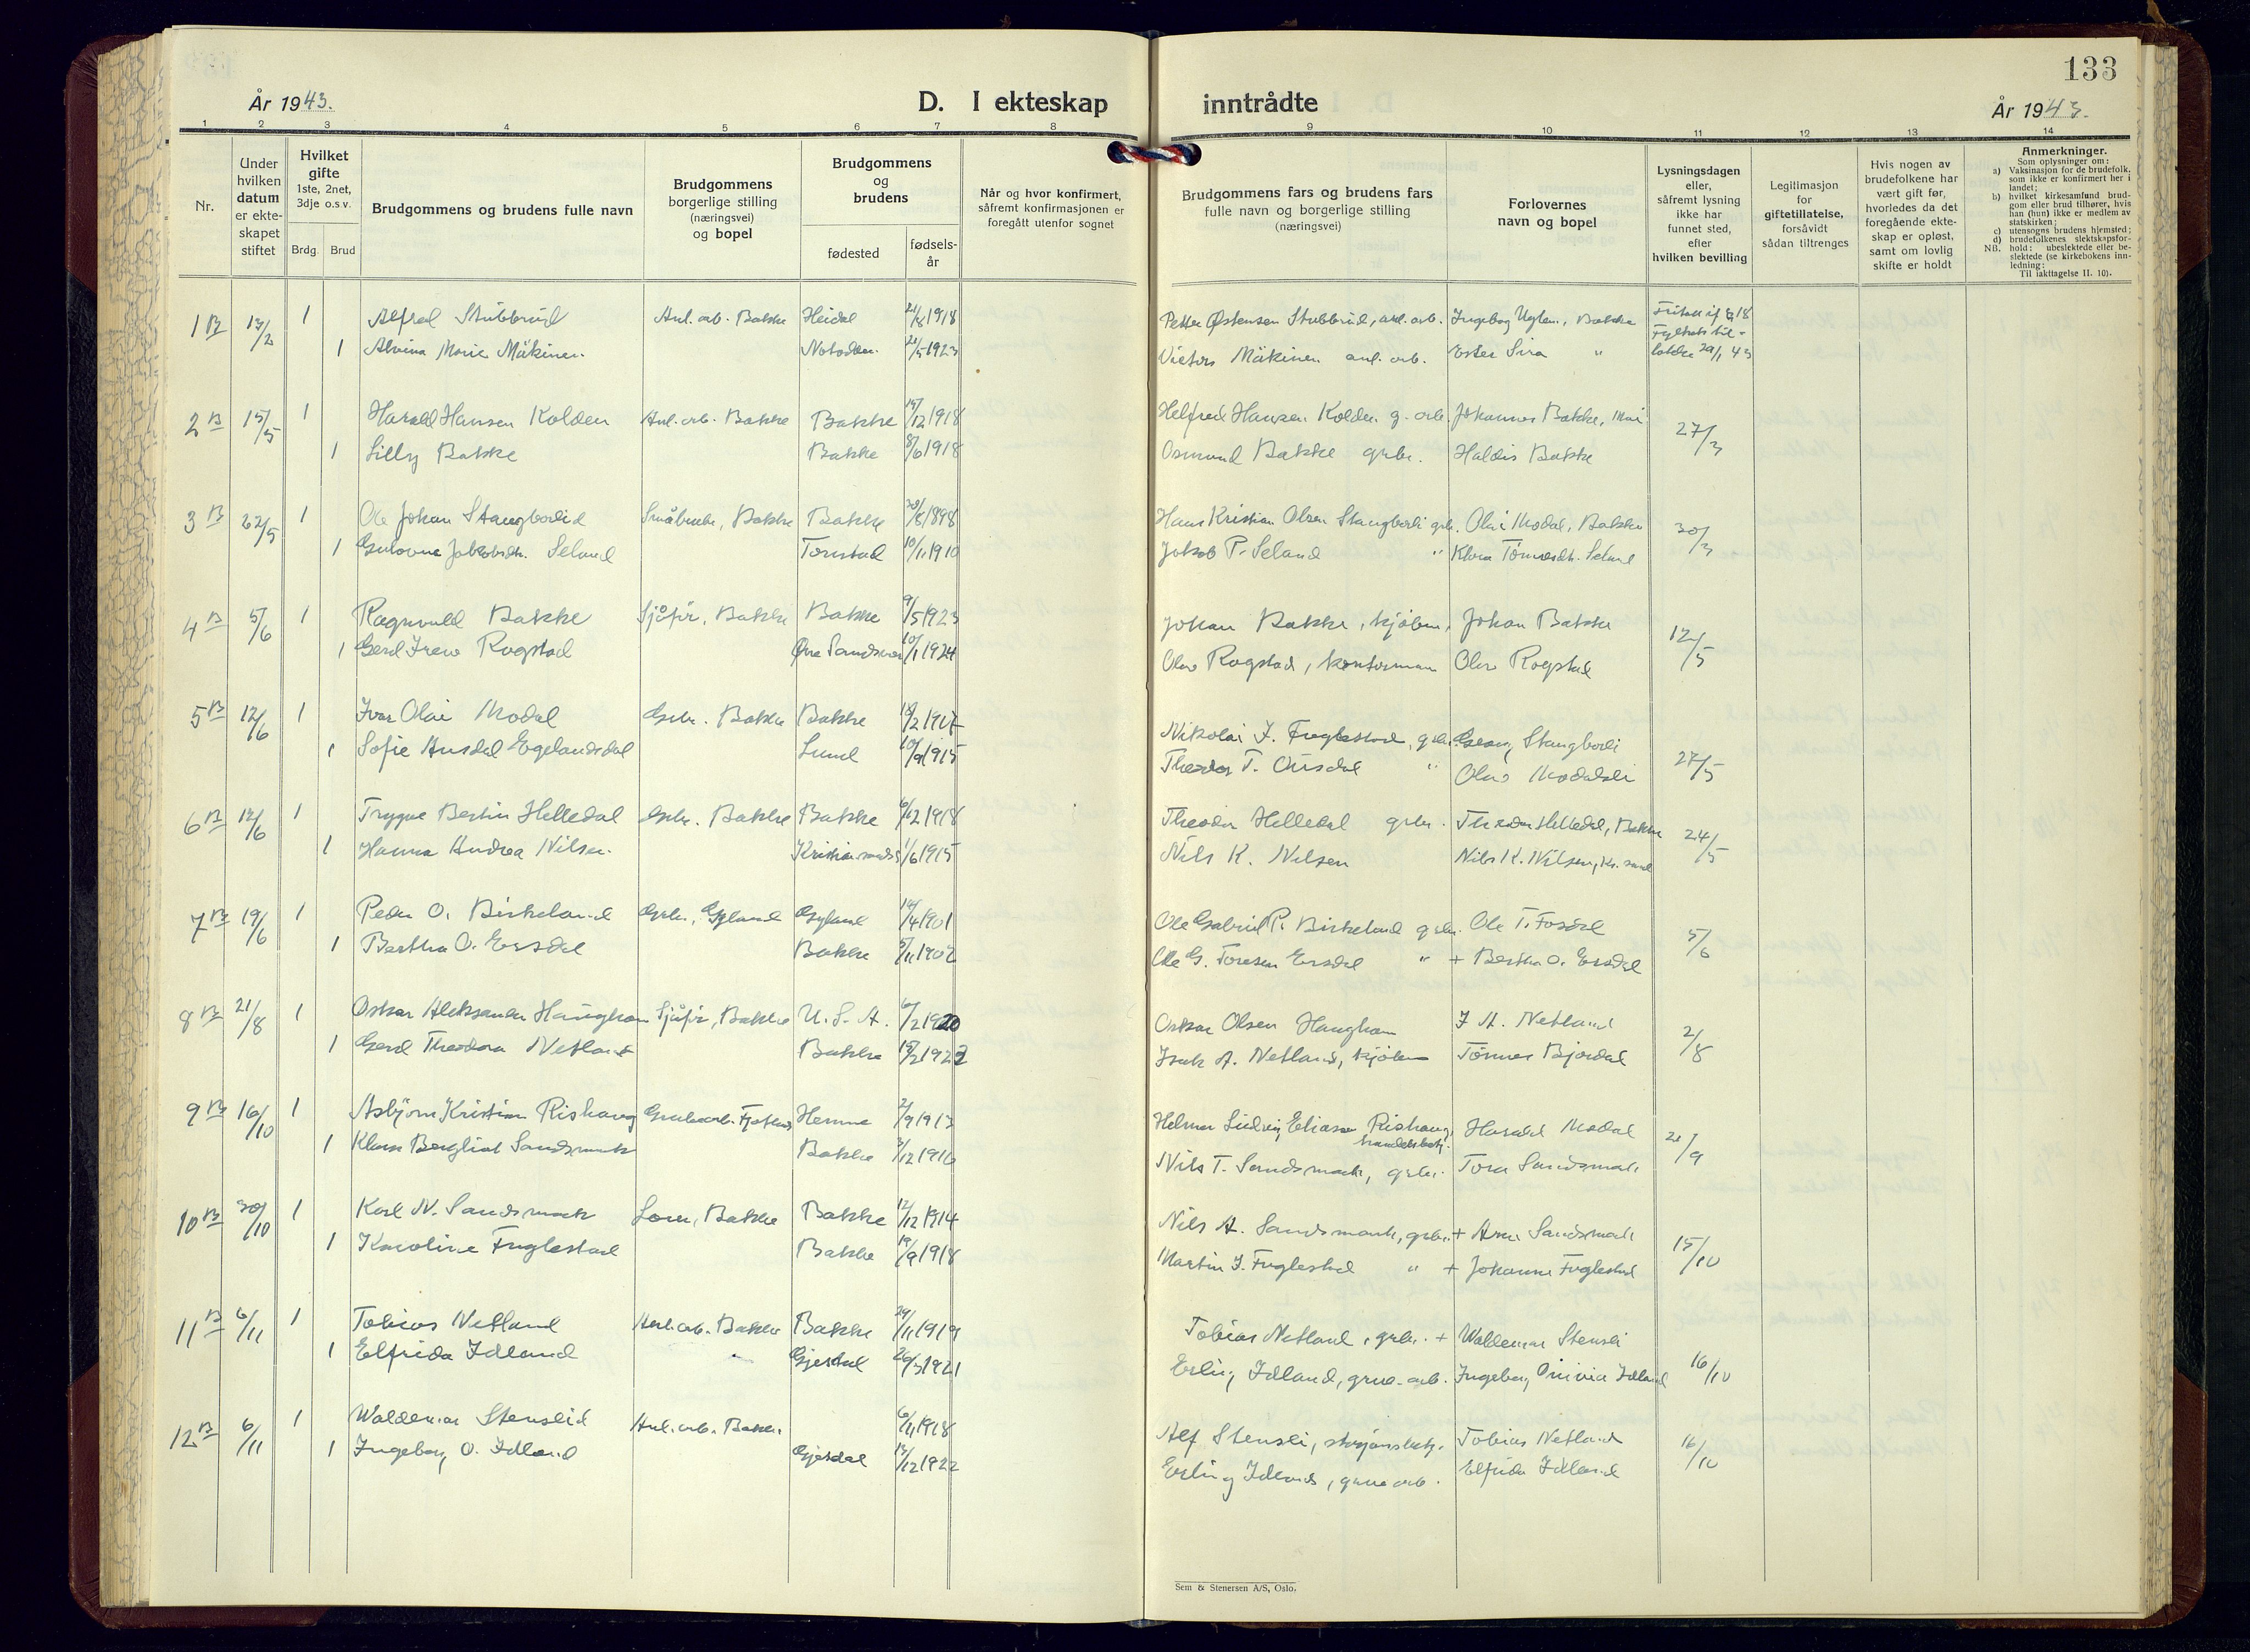 133
År 1943.
D. I ekteskap inntrådte
År 1943.
1 2 3 4 5 6 7 8 9 10 11 12 13 14
Nr.
Under hvilken datum er ekte-skapet stiftet
Hvilket gifte 1ste, 2net, 3dje o.s.v.
Brdg. Brud
Brudgommens og brudens fulle navn
Brudgommens borgerlige stilling (næringsvei) og bopel
Brudgommens og brudens
fødested
fødsels-år
Når og hvor konfirmert, såfremt konfirmasjonen er foregått utenfor sognet
Brudgommens fars og brudens fars fulle navn og borgerlige stilling (næringsvei)
Forlovernes navn og bopel
Lysningsdagen eller, såfremt lysning ikke har funnet sted, efter hvilken bevilling
Legitimasjon for giftetillatelse, forsåvidt sådan tiltrenges
Hvis nogen av brudefolkene har vært gift før, hvorledes da det foregående ekte-skap er opløst, samt om lovlig skifte er holdt
Anmerkninger.
Som oplysninger om:
a) Vaksinasjon for de brudefolk, som ikke er konfirmert her i landet;
b) hvilket kirkesamfund brud-gom eller brud tilhører, hvis han (hun) ikke er medlem av statskirken;
c) utensogns brudens hjemsted;
d) brudefolkenes slektskapsfor-hold: ubeslektede eller be-slektede (se kirkebokens inn-ledning:
NB. Til iakttagelse II. 10).
1 B 13/2 1 Alfred Stubbrud Anl. arb. Bakke Heidal 1918 Petter Østensen Stubbrud, anl. arb. Ingeborg Uglem, Bakke
1 Alvina Marie Mäkinen Notodden 1923 Victors Mäkinen anl. arb. Ester Sira "
2 B 15/5 1 Harald Hansen Kolden Anl. arb. Bakke Bakke 1918 Helfred Hansen Kolden g. arb. Johannes Bakke, 27/3
1 Lilly Bakke Bakke 8/6 1918 Osmund Bakke grbr. Haldis Bakke
3 B 22/5 1 Ole Johan Stangborlid Småbruker, Bakke Bakke 30/8 1898 Hans Kristian Olsen Stangborli grbr. Olai Modal, Bakke 30/3
1 Gulovne Jakobsdtr. Seland Tonstad 10/11 1910 Jakob P. Seland " Klara Tønnesdtr. Seland
4 B 5/6 1 Ragnvald Bakke Sjåfør, Bakke Bakke 9/5 1923 Johan Bakke, kjøbm. Johan Bakke 12/5
1 Gerd Irene Rogstad Øvre Sandsvær 10/1 1924 Olav Rogstad, kontorman Olav Rogstad
5 B 12/6 1 Ivar Olai Modal Grbr. Bakke Bakke Nikolai J. Fuglestad, grbr. Georg Stangborli 27/5
1 Sofie Ousdal Egelandsdal Lund 1915 Theodor T. Ousdal " Olav Modalsli
6 B 12/6 1 Trygve Bertin Helledal Grbr. Bakke Bakke 6/12 1918 Theodor Helledal grbr. Theodor Helledal, Bakke 24/5
1 Hanna Andrea Nilsen Kristiansand S 1/6 1915 Nils K. Nilsen Nils K. Nilsen, Kr. sand
7 B 19/6 1 Peder O. Birkeland Grbr., Gyland Gyland 14/4 1901 Ole Gabriel P. Birkeland grbr. Ole T. Fosdal 5/6
1 Bertha O. Ersdal Bakke 1902 Ole G. Toresen Ersdal " + Bertha O. Ersdal
8 B 21/8 1 Oskar Aleksander Haugham Sjåfør, Bakke U. S. A. 6/2 1920 Oskar Olsen Haugham J A. Netland 2/8
1 Gerd Theodora Netland Bakke 1922 Isak A. Netland, kjøbm Tønnes Bjordal
9 B 16/10 1 Asbjørn Kristian Rishaug Grubearb. Hemne 2/9 1913 Helmer Ludvig Eliasen Rishaug, handelsbetj. Harald Modal 21/9
1 Klara Bergliot Sandsmark Bakke 3/12 1916 Nils T. Sandsmark, grbr. Tora Sandsmark
10 B 30/10 1 Karl N. Sandsmark Bakke Bakke 12/12 1914 Nils A. Sandsmark, grbr. + Arne Sandsmark 15/10
1 Karoline Fuglestad Bakke 19/9 1918 Martin J. Fuglestad " + Johanne Fuglestad
11 B 6/11 1 Tobias Netland Anl. arb. Bakke Bakke 29/11 1919 Tobias Netland, grbr. + Waldemar Stensli 16/10
1 Elfrida Idland Gjesdal 26/3 1921 Erling Idland, gruvearb. Ingeborg Idland
12 B 6/11 1 Waldemar Stenslid Anl. arb. Bakke. 6/11 1918 Alf Stensli, stasjonsbetj. Tobias Netland 16/10
1 Ingeborg O. Idland Gjesdal 13/12 1922 Erling Idland, gruvearb. Elfrida Idland
Sem & Stenersen A/S, Oslo.